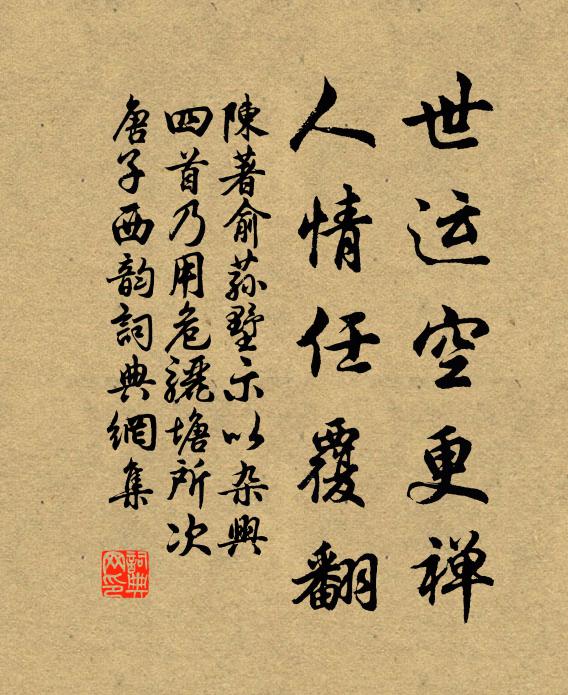 世运空更禅
人情任覆翻
陳著俞荪墅示以杂興
四首乃用危驪塘所次
唐子西韵詞典網集
詞典网印